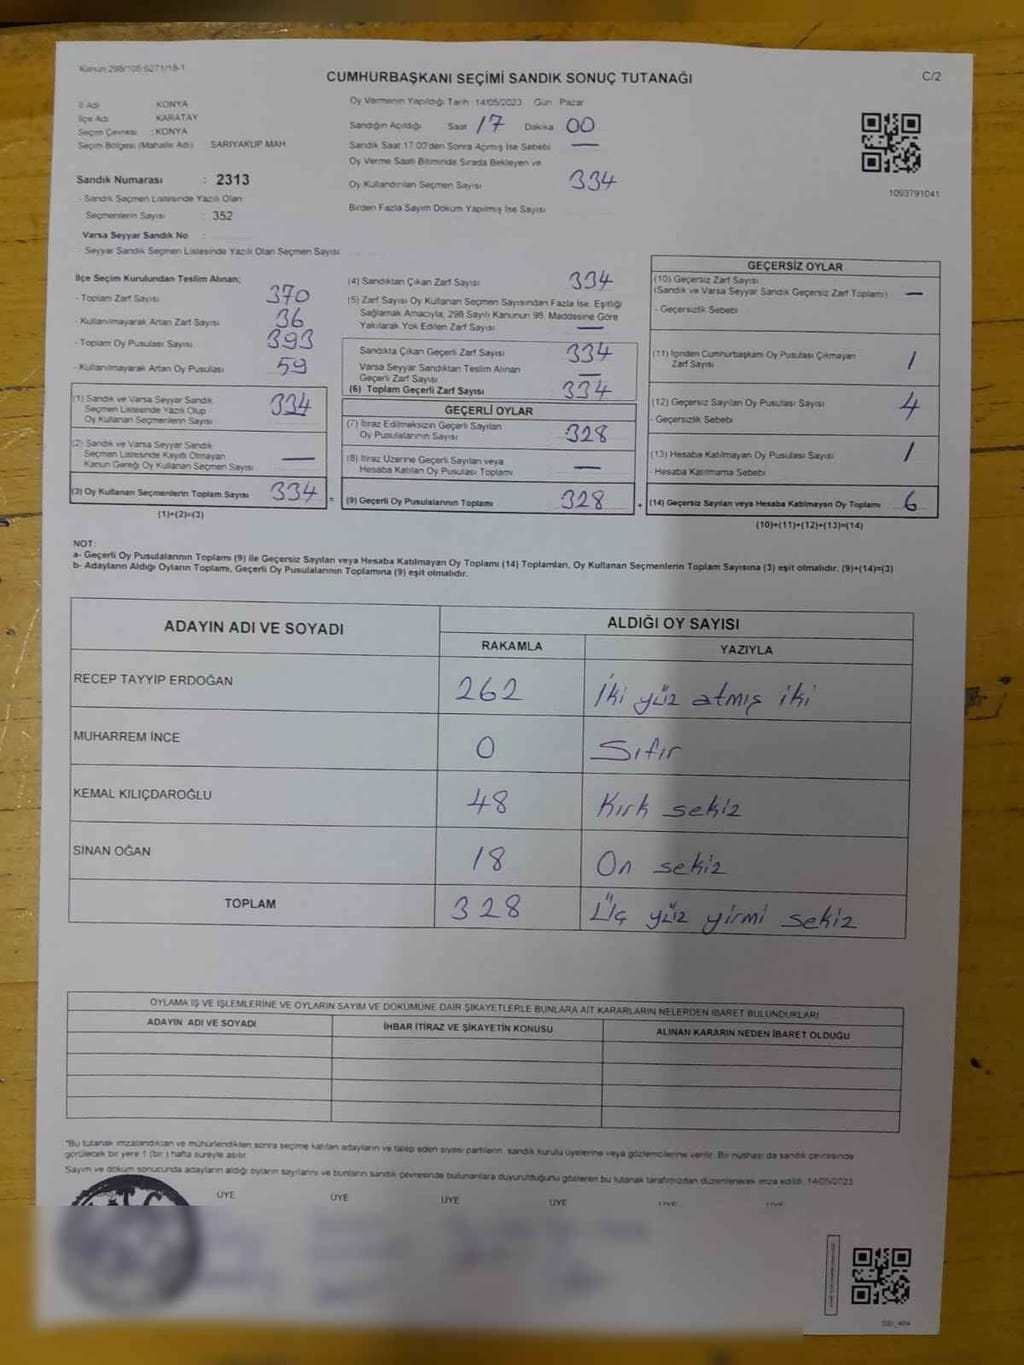 Kanun 298/105-6271/18-1
CUMHURBAŞKANI SEÇİMİ SANDIK SONUÇ TUTANAĞI
C/2
İl Adı KONYA
İlçe Adı KARATAY
Seçim Çevresi : KONYA
Seçim Bölgesi (Mahalle Adı) SARIYAKUP MAH
Sandık Numarası : 2313
- Sandık Seçmen Listesinde Yazılı Olan
Seçmenlerin Sayısı : 352
Varsa Seyyar Sandık No :
- Seyyar Sandık Seçmen Listesinde Yazılı Olan Seçmen Sayısı
Oy Vermenin Yapıldığı Tarih : 14/05/2023 Gün Pazar
Sandığın Açıldığı Saat 17 Dakika 00
Sandık Saat 17.00'den Sonra Açılmış İse Sebebi —
Oy Verme Saati Bitiminde Sırada Bekleyen ve
Oy Kullandırılan Seçmen Sayısı 334
Birden Fazla Sayım Döküm Yapılmış İse Sayısı
1093791041
İlçe Seçim Kurulundan Teslim Alınan;
- Toplam Zarf Sayısı 370
- Kullanılmayarak Artan Zarf Sayısı 36
- Toplam Oy Pusulası Sayısı 393
- Kullanılmayarak Artan Oy Pusulası 59
(1) Sandık ve Varsa Seyyar Sandık
Seçmen Listesinde Yazılı Olup
Oy Kullanan Seçmenlerin Sayısı 334
(2) Sandık ve Varsa Seyyar Sandık
Seçmen Listesinde Kayıtlı Olmayan
Kanun Gereği Oy Kullanan Seçmen Sayısı —
(3) Oy Kullanan Seçmenlerin Toplam Sayısı 334 =
(1)+(2)=(3)
(4) Sandıktan Çıkan Zarf Sayısı 334
(5) Zarf Sayısı Oy Kullanan Seçmen Sayısından Fazla İse, Eşitliği
Sağlamak Amacıyla, 298 Sayılı Kanunun 98. Maddesine Göre
Yakılarak Yok Edilen Zarf Sayısı —
Sandıkta Çıkan Geçerli Zarf Sayısı 334
Varsa Seyyar Sandıktan Teslim Alınan
Geçerli Zarf Sayısı —
(6) Toplam Geçerli Zarf Sayısı 334
GEÇERLİ OYLAR
(7) İtiraz Edilmeksizin Geçerli Sayılan
Oy Pusulalarının Sayısı 328
(8) İtiraz Üzerine Geçerli Sayılan veya
Hesaba Katılan Oy Pusulası Toplamı —
(9) Geçerli Oy Pusulalarının Toplamı 328 +
GEÇERSİZ OYLAR
(10) Geçersiz Zarf Sayısı
(Sandık ve Varsa Seyyar Sandık Geçersiz Zarf Toplamı) —
- Geçersizlik Sebebi
(11) İçinden Cumhurbaşkanı Oy Pusulası Çıkmayan
Zarf Sayısı 1
(12) Geçersiz Sayılan Oy Pusulası Sayısı 4
- Geçersizlik Sebebi
(13) Hesaba Katılmayan Oy Pusulası Sayısı 1
- Hesaba Katılmama Sebebi
(14) Geçersiz Sayılan veya Hesaba Katılmayan Oy Toplamı 6
(10)+(11)+(12)+(13)=(14)
NOT:
a- Geçerli Oy Pusulalarının Toplamı (9) ile Geçersiz Sayılan veya Hesaba Katılmayan Oy Toplamı (14) Toplamları, Oy Kullanan Seçmenlerin Toplam Sayısına (3) eşit olmalıdır. (9)+(14)=(3)
b- Adayların Aldığı Oyların Toplamı, Geçerli Oy Pusulalarının Toplamına (9) eşit olmalıdır.
ADAYIN ADI VE SOYADI ALDIĞI OY SAYISI
RAKAMLA YAZIYLA
RECEP TAYYİP ERDOĞAN 262 İki yüz atmış iki
MUHARREM İNCE 0 Sıfır
KEMAL KILIÇDAROĞLU 48 Kırk sekiz
SİNAN OĞAN 18 On sekiz
TOPLAM 328 Üç yüz yirmi sekiz
OYLAMA İŞ VE İŞLEMLERİNE VE OYLARIN SAYIM VE DÖKÜMÜNE DAİR ŞİKAYETLERLE BUNLARA AİT KARARLARIN NELERDEN İBARET BULUNDUKLARI
ADAYIN ADI VE SOYADI İHBAR İTİRAZ VE ŞİKAYETİN KONUSU ALINAN KARARIN NEDEN İBARET OLDUĞU
*Bu tutanak imzalandıktan ve mühürlendikten sonra seçime katılan adayların ve talep eden siyasi partilerin, sandık kurulu üyelerine veya gözlemcilerine verilir. Bir nüshası da sandık çevresinde
görülecek bir yere 1 (bir ) hafta süreyle asılır.
Sayım ve döküm sonucunda adayların aldığı oyların sayılarını ve bunların sandık çevresinde bulunanlara duyurulduğunu gösteren bu tutanak tarafımızdan düzenlenerek imza edildi. 14/05/2023
ÜYE ÜYE ÜYE ÜYE